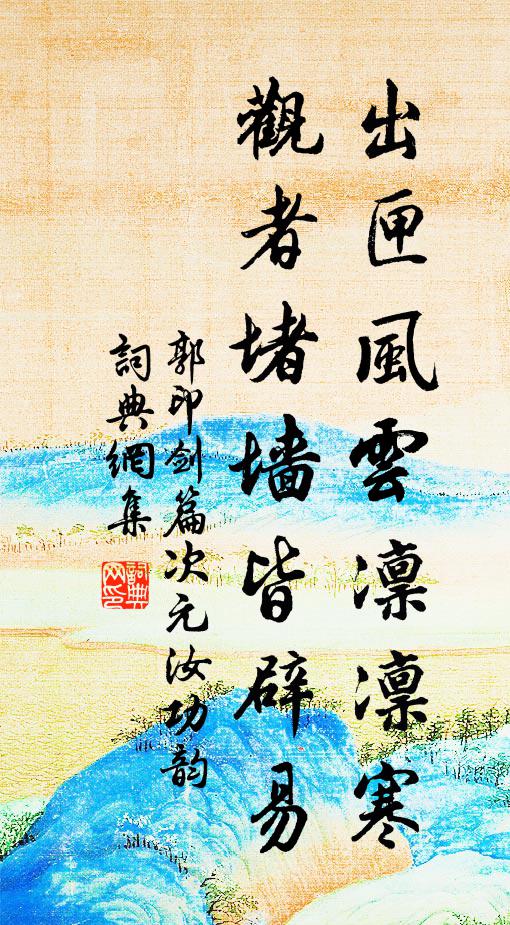 出匣風雲凛凛寒
觀者堵墻皆辟易
郭印劍篇次元汝功韵
詞典網集
詞典网印